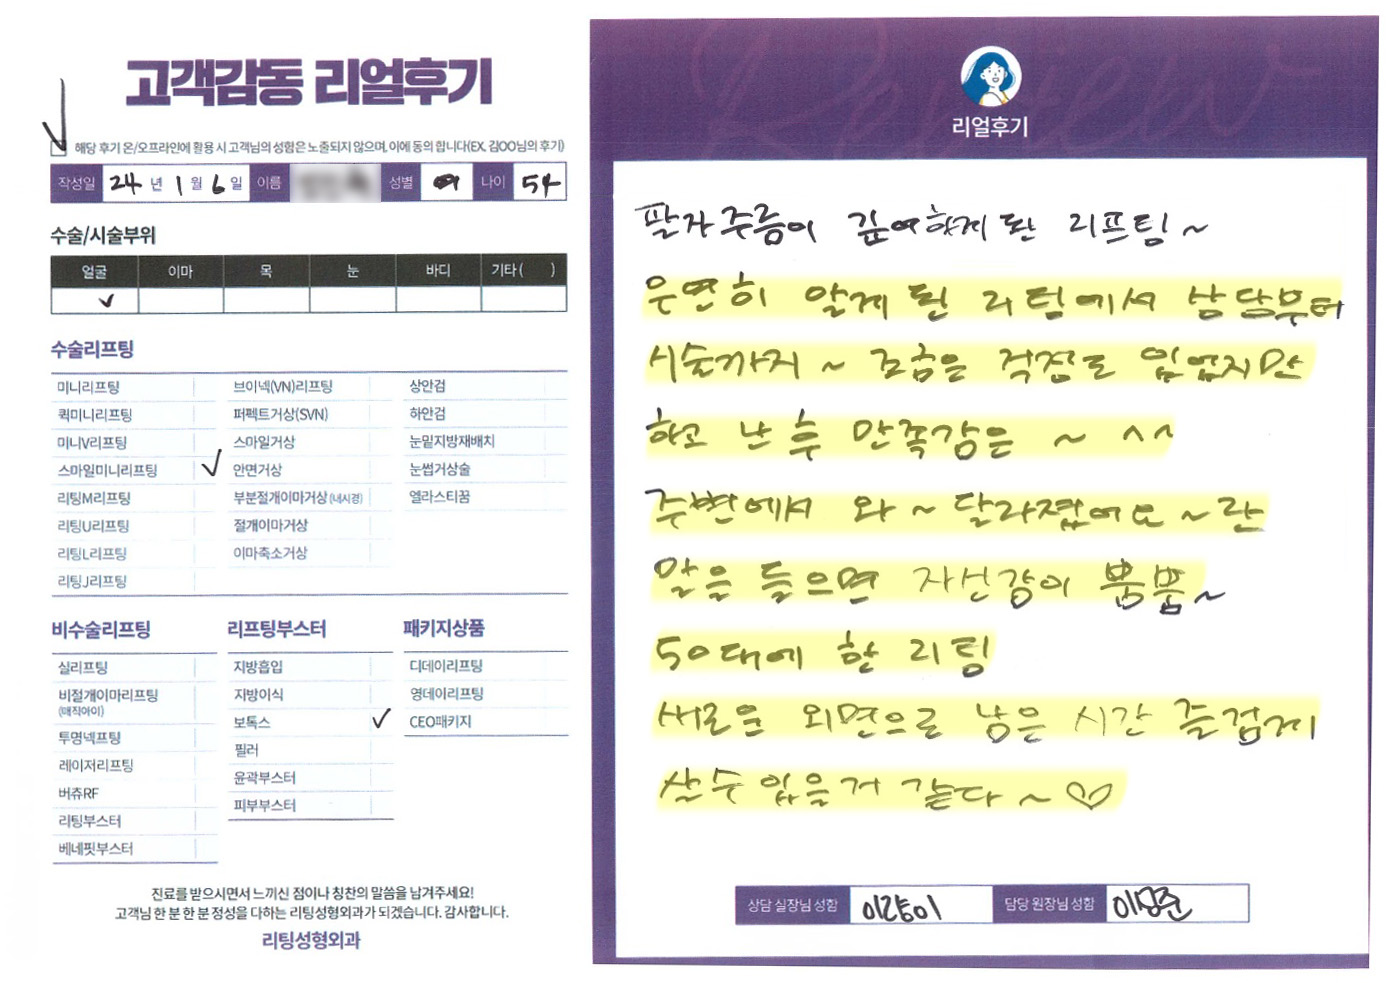 고객감동 리얼후기
해당 후기 온/오프라인에 활용 시 고객님의 성함은 노출되지 않으며, 이에 동의 합니다(EX. 김OO님의 후기)
작성일 24년 1월 6일 이름 성별 여 나이 54
수술/시술부위
얼굴 이마 목 눈 바디 기타( )
✓
수술리프팅
미니리프팅 브이넥(VN)리프팅 상안검
퀵미니리프팅 퍼펙트거상(SVN) 하안검
미니V리프팅 스마일거상 눈밑지방재배치
스마일미니리프팅 ✓ 안면거상 눈썹거상술
리팅M리프팅 부분절개이마거상(내시경) 엘라스티꿈
리팅U리프팅 절개이마거상
리팅L리프팅 이마축소거상
리팅J리프팅
비수술리프팅 리프팅부스터 패키지상품
실리프팅 지방흡입 디데이리프팅
비절개이마리프팅 지방이식 영데이리프팅
(매직아이) 보톡스 ✓ CEO패키지
투명넥프팅 필러
레이저리프팅 윤곽부스터
버츄RF 피부부스터
리팅부스터
베네핏부스터
진료를 받으시면서 느끼신 점이나 칭찬의 말씀을 남겨주세요!
고객님 한 분 한 분 정성을 다하는 리팅성형외과가 되겠습니다. 감사합니다.
리팅성형외과
Review
리얼후기
팔자주름이 깊어 하게 된 리프팅~
우연히 알게 된 리팅에서 상담부터
시술까지 ~ 조금은 걱정도 있었지만
하고 난 후 만족감은 ~ ^^
주변에서 와 ~ 달라졌어요 ~ 란
말을 들으면 자신감이 뿜뿜~
50대에 한 리팅
새로운 외면으로 남은 시간 즐겁게
살 수 있을거 같다 ~ ♡
상담 실장님 성함 담당 원장님 성함